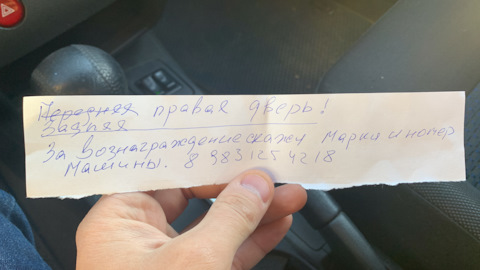 Передняя правая дверь!
Задняя
За вознаграждение скажи марки и номер
машины. 8 983 125 42 18